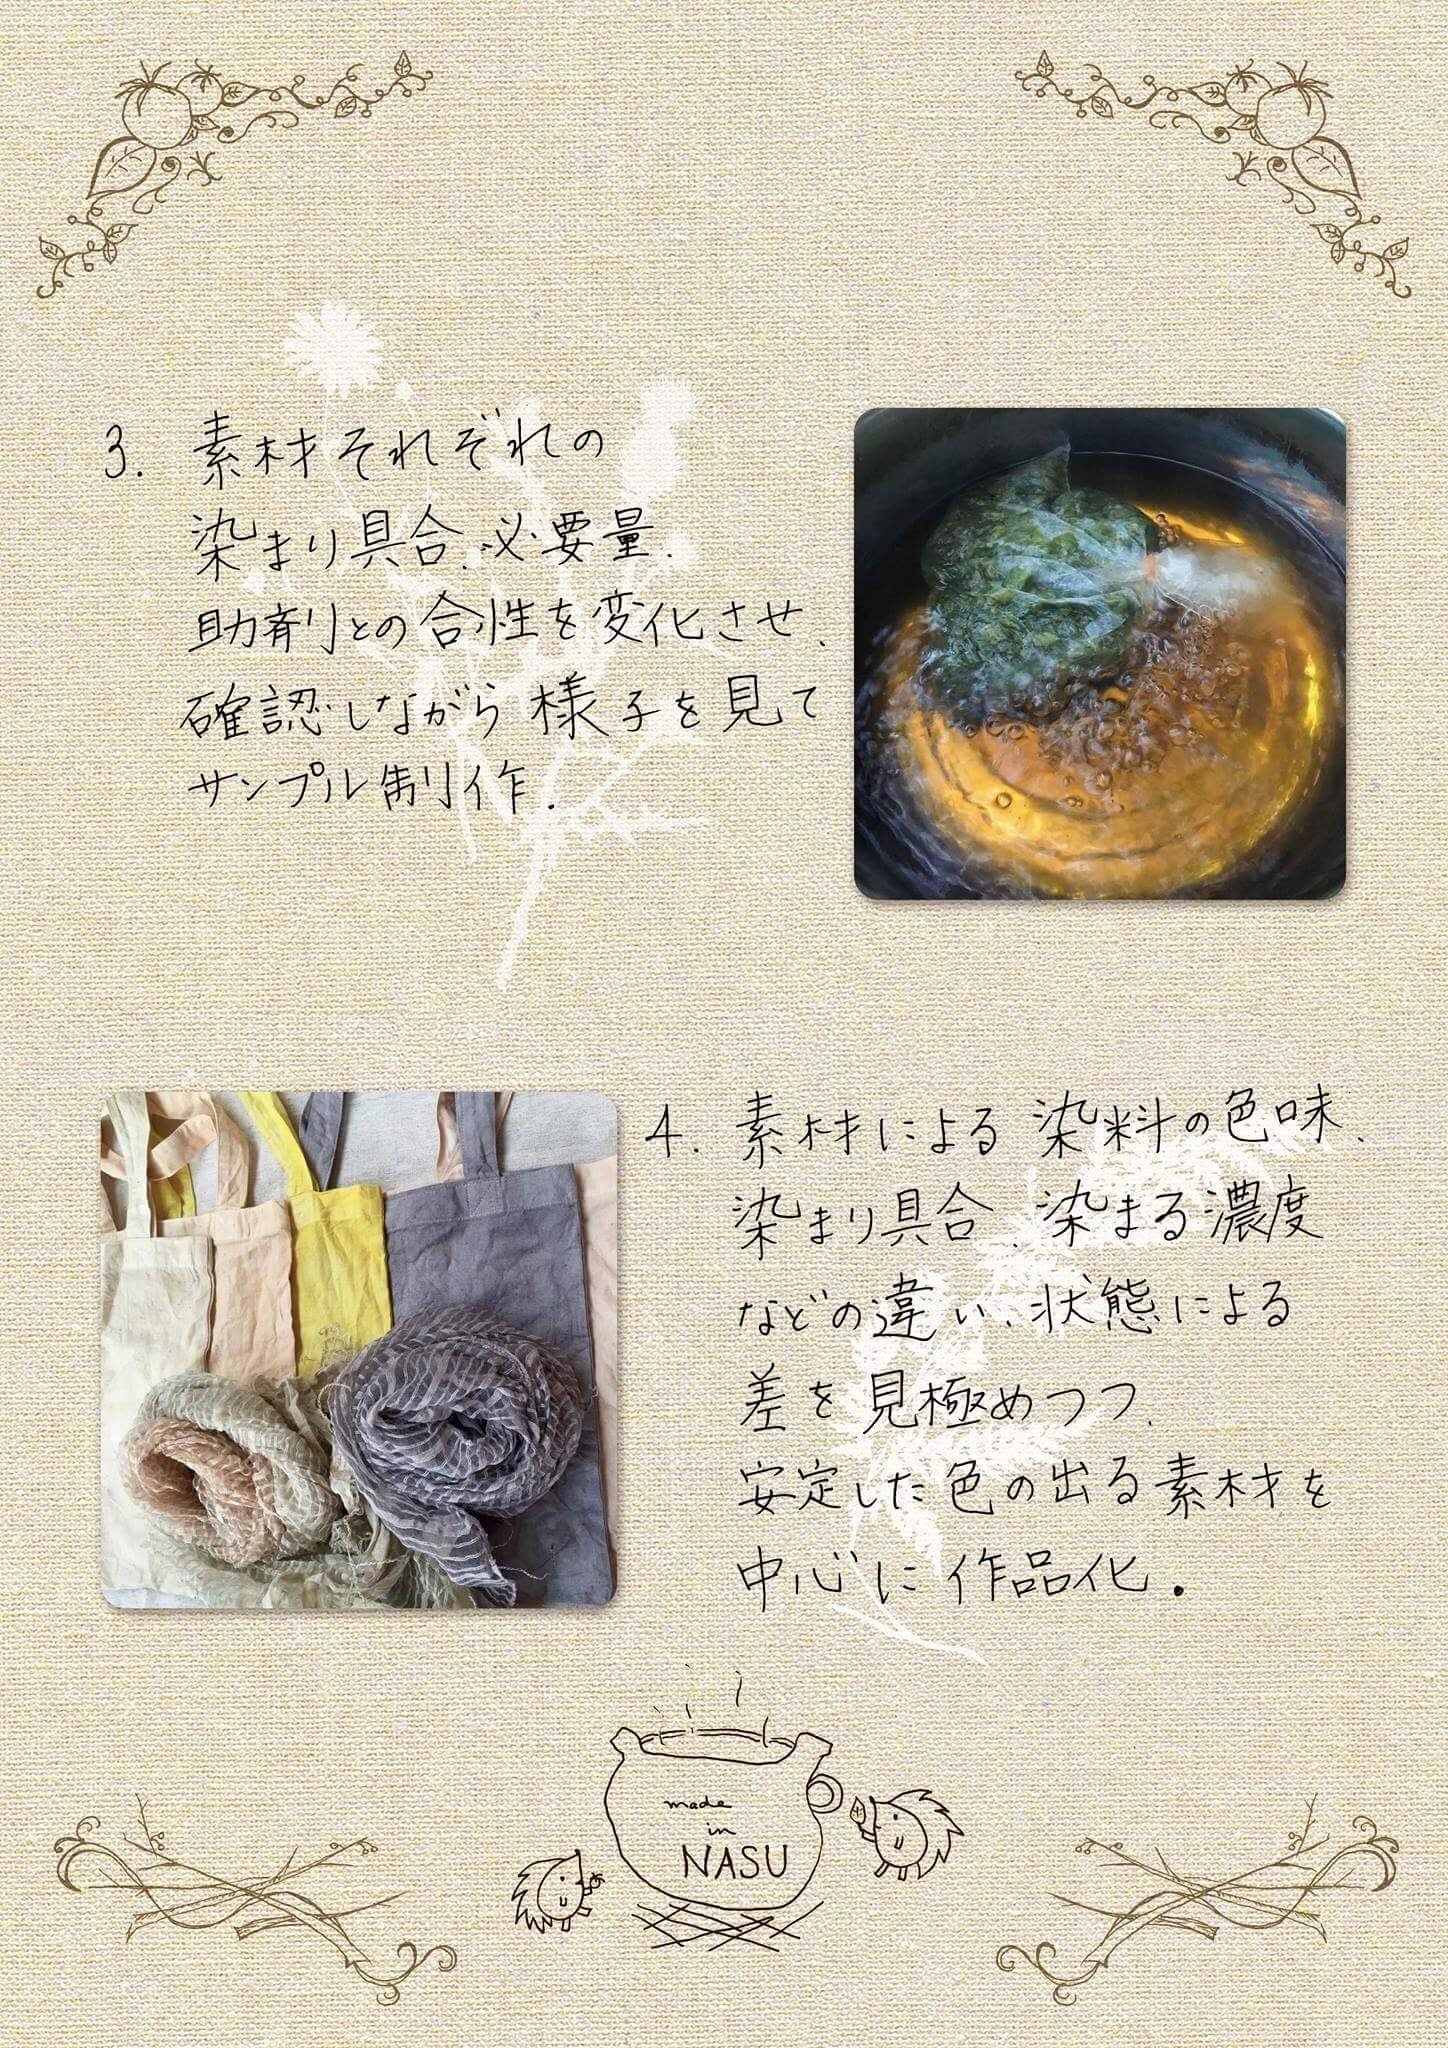 3. 素材それぞれの
染まり具合、必要量、
助剤との合性を変化させ、
確認しながら様子を見て
サンプル制作.
4. 素材による染料の色味、
染まり具合、染まる濃度
などの違い、状態による
差を見極めつつ、
安定した色の出る素材を
中心に作品化.
made
in
NASU